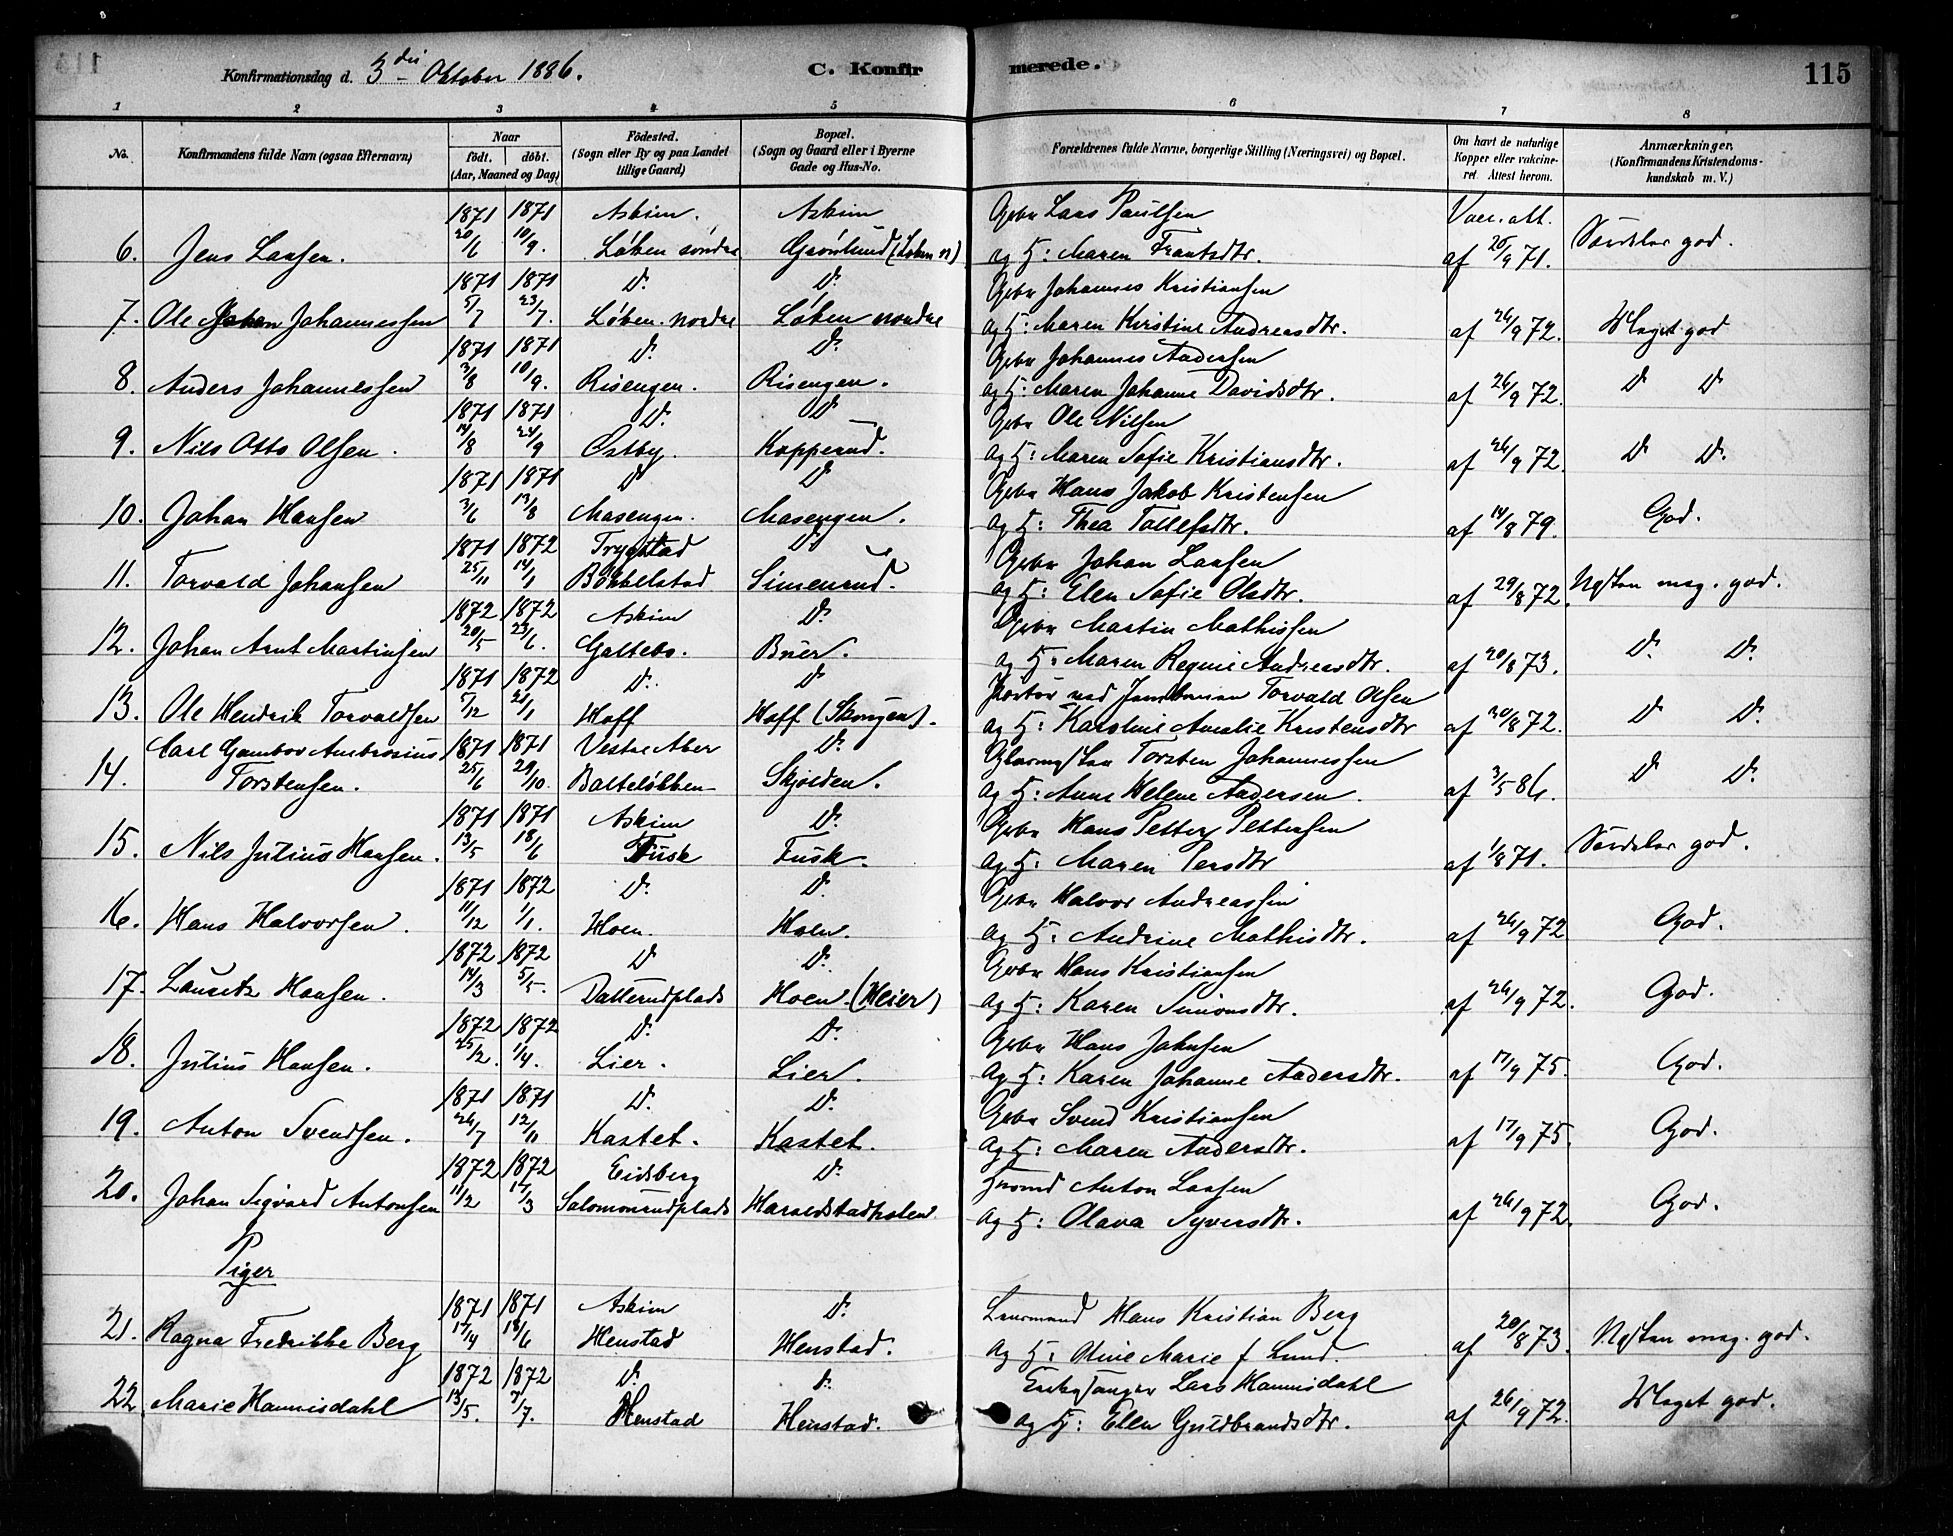 115
Konfirmationsdag d. 3die Oktober 1886.
C. Konfirmerede.
1 2 3 4 5 6 7 8
No.
Konfirmandens fulde Navn (ogsaa Efternavn)
Naar
födt. döbt.
(Aar, Maaned og Dag)
Födested.
(Sogn eller By og paa Landet
tillige Gaard)
Bopæl.
(Sogn og Gaard eller i Byerne
Gade og Hus-No.
Forældrenes fulde Navne, borgerlige Stilling (Næringsvei) og Bopæl.
Om havt de naturlige
Kopper eller vakcine-
ret. Attest herom.
Anmærkninger.
(Konfirmandens Kristendoms-
kundskab m. V.)
1871 1871 Askim. Askim Gbr Lars Paulsen Vacc. att.
6. Jens Larsen. 20/6 10/9. Løken søndre Grønlund (Løken n) og H: Maren Frantsdtr. af 25/9 71. Særdeles god.
1871 1871 Do. Do. Gbr Johannes Kristiansen
7. Ole Johan Johannessen 5/7 23/7. Løken nordre Løken nordre og H: Maren Kirstine Andreasdtr. af 26/9 72. Meget god
1871 1871 Do. Do. Gbr Johannes Andersen
8. Anders Johannessen 3/8 10/9. Risengen. Risengen. og H: Maren Johanne Davidsdtr. af 26/9 72. Do Do
1871 1871 Do. Do Gbr Ole Nilsen
9. Nils Otto Olsen. 14/8 24/9 Østby. Kopperud. og H: Maren Sofie Kristiansdtr. af 26/9 72. Do Do.
1871 1871 Do Do Gbr Hans Jakob Kristensen
10. Johan Hansen 3/6 13/8 Masengen. Masengen. og H: Thea Tollefsdtr. af 14/8 79. God.
1871 1872 Trygstad Do. Gbr Johan Larsen
11. Torvald Johansen 25/11 14/1 Bøkkelstad Simenrud. og H: Elen Sofie Olsdtr. af 29/8 72. Næsten meg. god.
1872 1872 Askim Do. Gbr Martin Mathissen
12. Johan Arnt Martinsen 20/5 23/6. Galtebo. Bruer. og H: Maren Regine Andreasdtr. af 20/8 73. Do. Do.
1871 1872 Do. Do Portør ved Jernbanen Torvald Olsen
13. Ole Hendrik Torvaldsen 5/12 21/1 Hoff Hoff (Skougen). og H: Karoline Amalie Kristensdtr af 20/8 72. Do Do.
Carl Gambov Ambrosius 1871 1871 Vestre Aker Do. Glarmester Torsten Johannessen
14. Torstensen. 25/6 29/10. Balteløkken Skjolden. og H: Anne Helene Andersen. af 3/5 86. Do Do.
1871 1871 Askim Do. Gbr Hans Petter Pettersen
15. Nils Julius Hansen. 13/5 18/6 Tusk Tusk. og H: Maren Persdtr af 1/8 71. Særdeles god.
1871 1872 Do. Do. Gbr Halvor Andreassen
16. Hans Halvorsen. 11/12 1/1. Hoen. Hoen. og H: Andrine Mathisdtr. af 26/9 72 God.
1872 1872 Do Do. Gbr Hans Kristiansen
17. Lauritz Hansen. 14/3 5/5. Dallerudplads Hoen (Heier) og H: Karen Simonsdtr. af 26/9 72. God.
1872 1872 Do. Do. Gbr Hans Johnsen
18. Julius Hansen. 25/2. 1/4. Lier. Lier. og H: Karen Johanne Andersdtr. af 17/9 75. God.
1871 1871 Do. Do. Gbr Svend Kristiansen
19. Anton Svendsen. 26/7 12/11 Kastet. Kastet. og H: Maren Andersdtr. af 17/9 75. God.
1872 1872 Eidsberg Do. Husmd Anton Larsen
20. Johan Sigvard Antonsen 11/2 17/3 Salomonrudplads Haraldstadholen. og H: Olava Syversdtr. af 26/9 72. God.
Piger
1871 1871 Askim Do. Lensmand Hans Kristian Berg
21. Ragna Fredrikke Berg 17/4 18/6 Henstad Henstad. og H: Oline Marie f Lund. af 20/8 73. Næsten meg. god.
1872 1872 Do. Do. Kirkesanger Lars Hannisdahl
22. Marie Hannisdahl 13/5. 7/7. Henstad Henstad. og H: Ellen Guldbrandsdtr. af 26/9 72. Meget god.